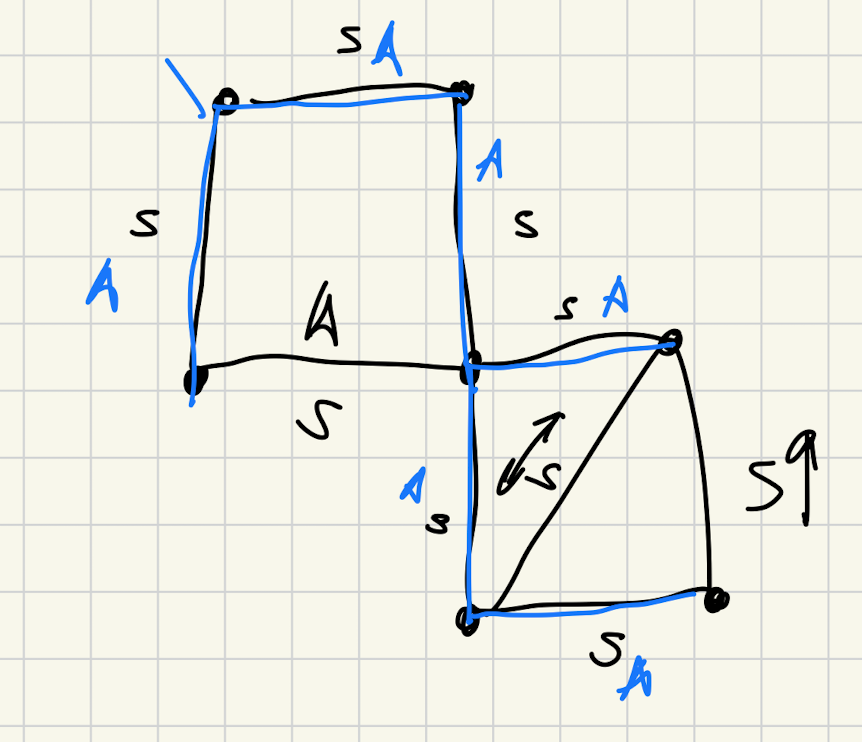 S A
A
S
S
A
S A
A
S
A
S
S
S
S A